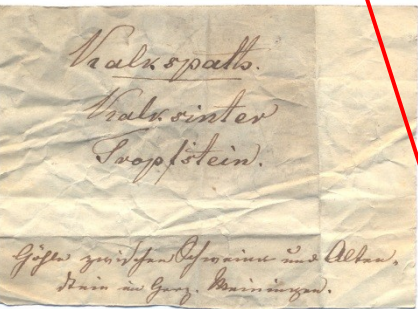 Kalkspath.
Kalksinter
Tropfstein.
Höhle zwischen Schweina und Alten-
stein im Herz. Meiningen.